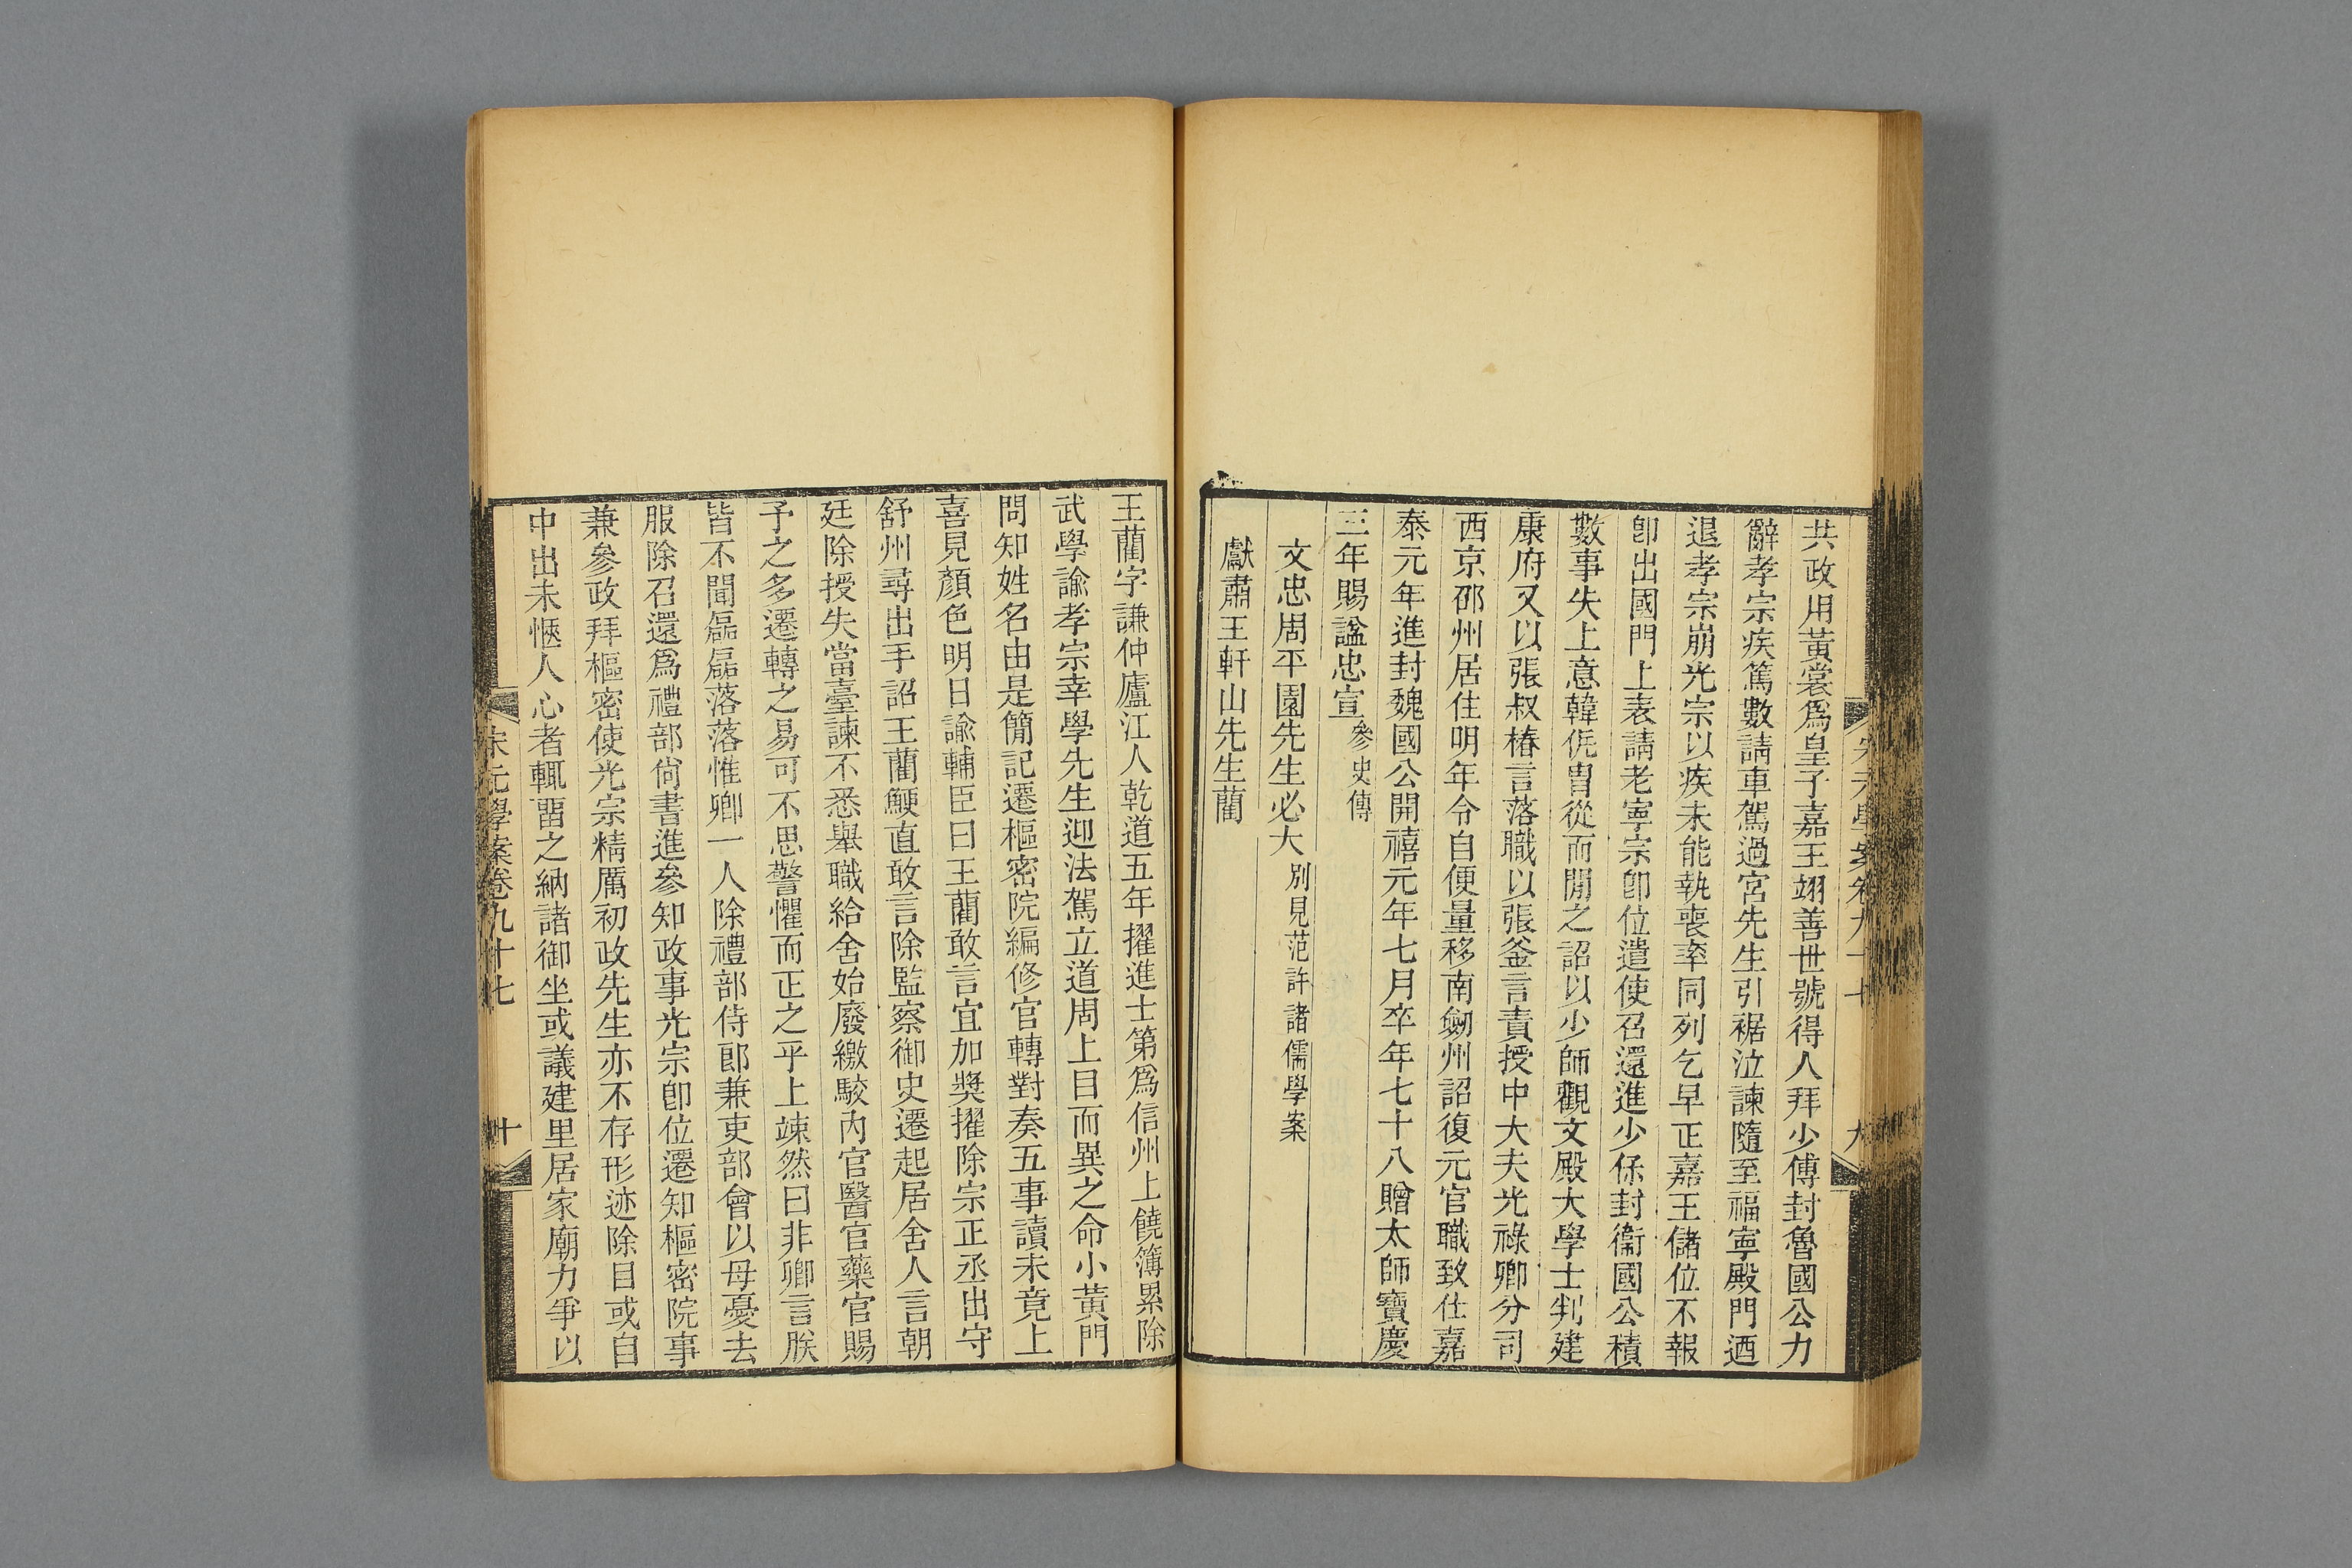 共政用黃裳爲皇子嘉王翊善世號得人拜少傅封魯國公力
辭孝宗疾篤數請車駕過宮先生引裾泣諫隨至福寧殿門迺
退孝宗崩光宗以疾未能執喪率同列乞早正嘉王儲位不報
卽出國門上表請老寧宗卽位遣使召還進少保封衞國公積
數事失上意韓侂冑從而閒之詔以少師觀文殿大學士判建
康府又以張叔椿言落職以張釜言責授中大夫光祿卿分司
西京邵州居住明年令自便量移南劒州詔復元官職致仕嘉
泰元年進封魏國公開禧元年七月卒年七十八贈太師寶慶
三年賜諡忠宣參史傳
文忠周平園先生必大別見范許諸儒學案
獻肅王軒山先生藺
王藺字謙仲廬江人乾道五年擢進士第爲信州上饒簿累除
武學諭孝宗幸學先生迎法駕立道周上目而異之命小黃門
問知姓名由是簡記遷樞密院編修官轉對奏五事讀未竟上
喜見顏色明日諭輔臣曰王藺敢言宜加獎擢除宗正丞出守
舒州尋出手詔王藺鯁直敢言除監察御史遷起居舍人言朝
廷除授失當臺諫不悉舉職給舍始廢繳駁內官醫官藥官賜
予之多遷轉之易可不思警懼而正之乎上竦然曰非卿言朕
皆不聞磊磊落落惟卿一人除禮部侍郎兼吏部會以母憂去
服除召還爲禮部尙書進參知政事光宗卽位遷知樞密院事
兼參政拜樞密使光宗精厲初政先生亦不存形迹除目或自
中出未愜人心者輒畱之納諸御坐或議建里居家廟力爭以
宋元學案卷九十七
十